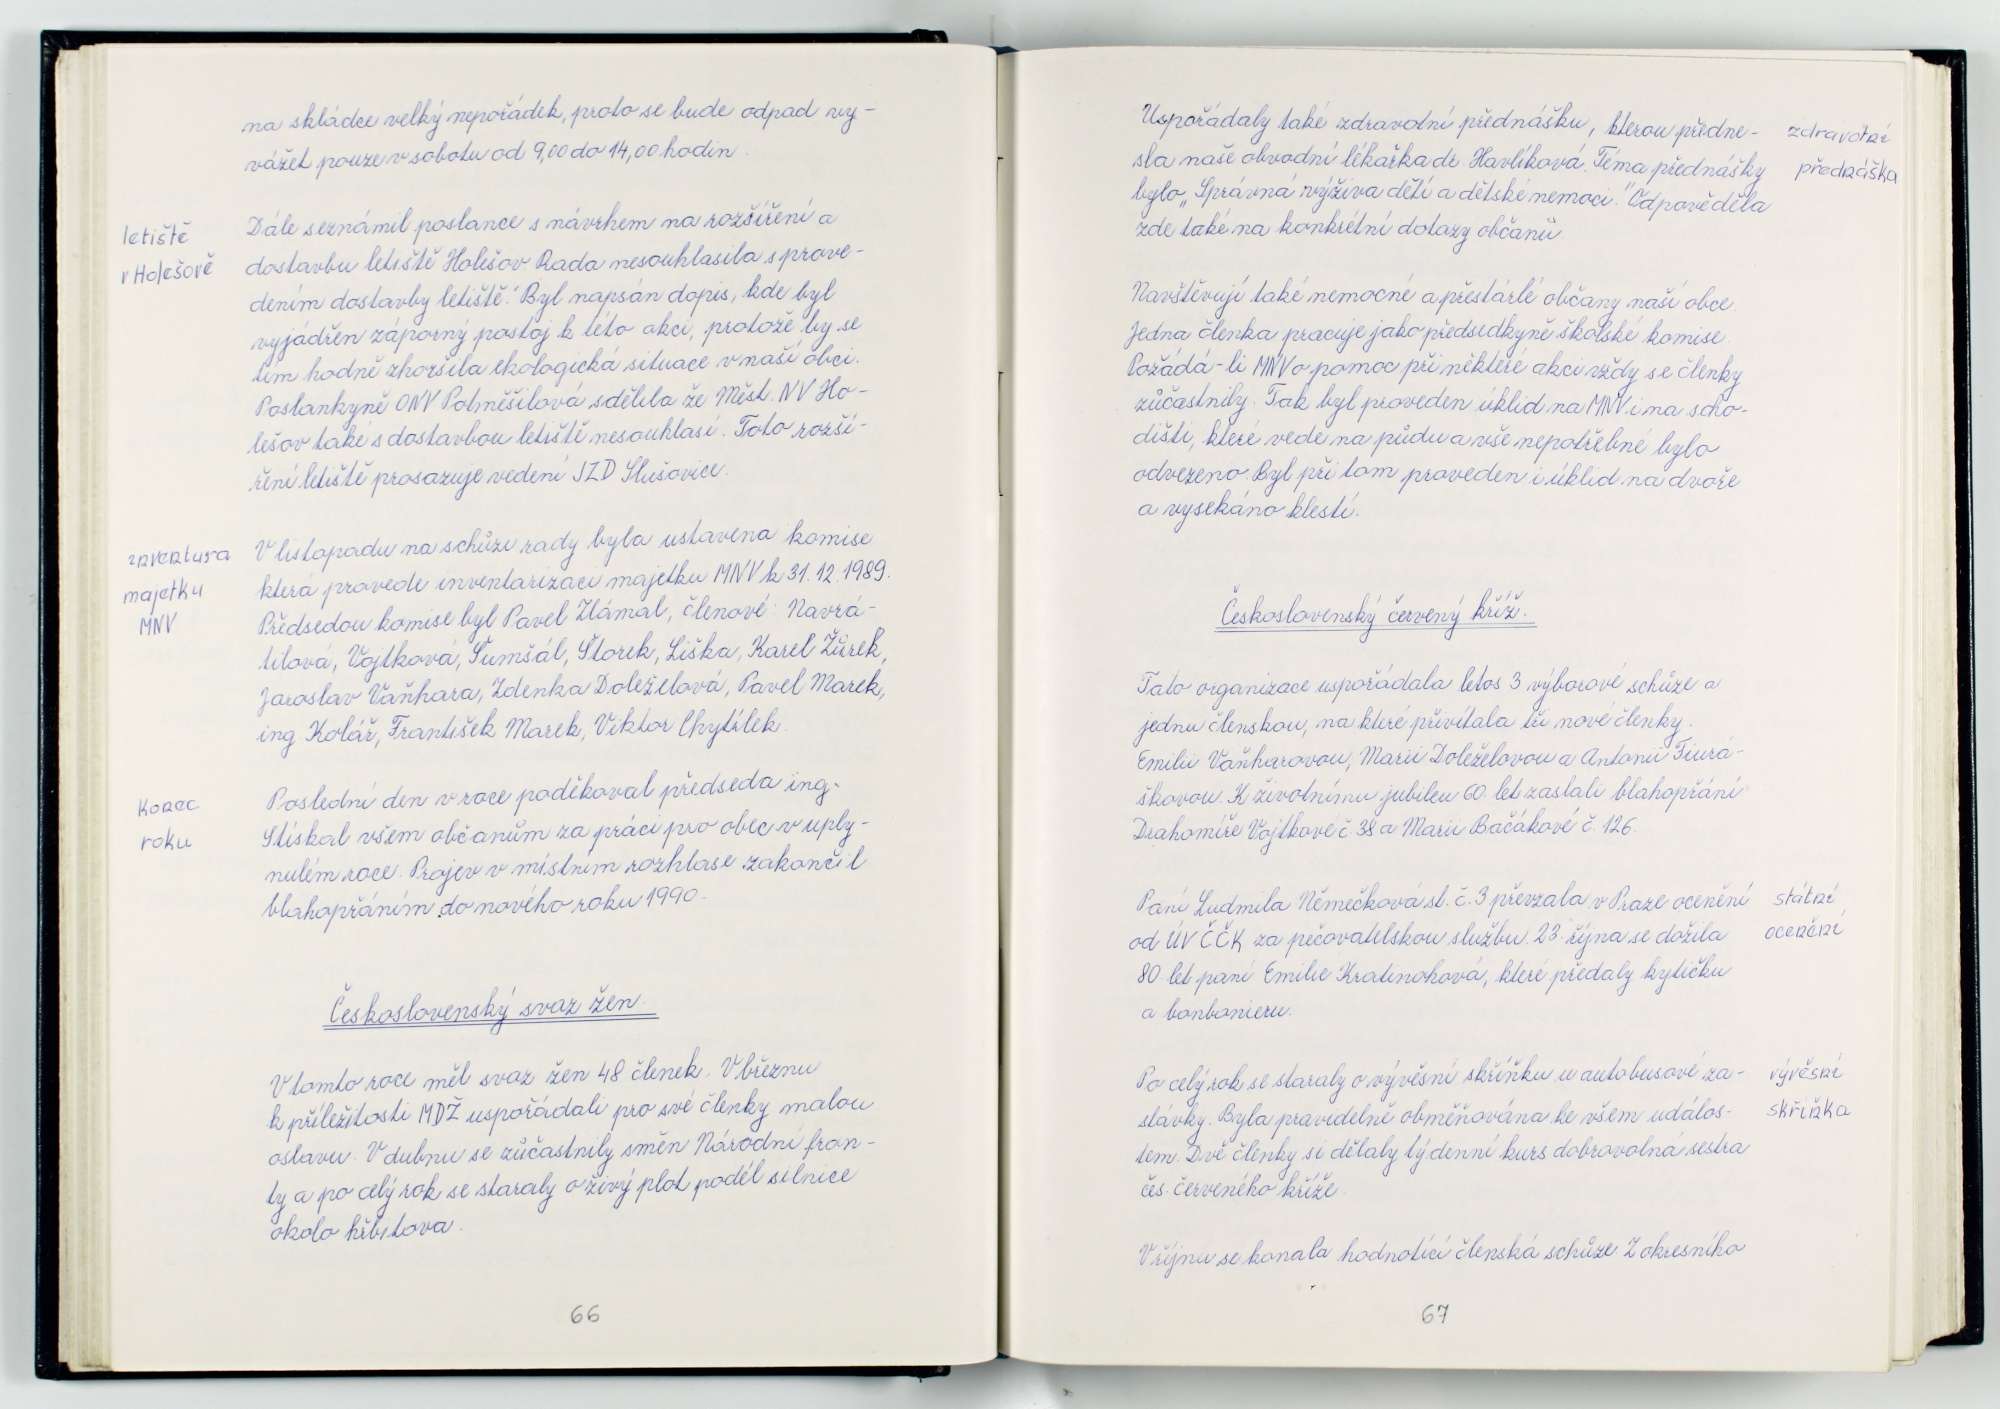 na skládce velký nepořádek, proto se bude odpad vy-
vážet pouze v sobotu od 9,00 do 14,00 hodin.
letiště
v Holešově
Dále seznámil poslance s návrhem na rozšíření a
dostavbu letiště Holešov. Rada nesouhlasila s prove-
dením dostavby letiště. Byl napsán dopis, kde byl
vyjádřen záporný postoj k této akci, protože by se
tím hodně zhoršila ekologická situace v naší obci.
Poslankyně ONV Polměšilová sdělila že Měst. NV Ho-
lešov také s dostavbou letiště nesouhlasí. Toto rozší-
ření letiště prosazuje vedení JZD Slušovice.
inventura
majetku
MNV
V listopadu na schůzi rady byla ustavena komise
která provede inventarizaci majetku MNV k 31.12.1989.
Předsedou komise byl Pavel Zlámal, členové: Navrá-
tilová, Vojtková, Šumšál, Štorek, Liška, Karel Žůrek,
Jaroslav Vaňhara, Zdenka Doleželová, Pavel Marek,
ing Kolář, František Marek, Viktor Chytílek.
Konec
roku
Poslední den v roce poděkoval předseda ing.
Stískal všem občanům za práci pro obec v uply-
nulém roce. Projev v místním rozhlase zakončil
blahopřáním do nového roku 1990.
Československý svaz žen.
V tomto roce měl svaz žen 48 členek. V březnu
k příležitosti MDŽ uspořádali pro své členky malou
oslavu. V dubnu se zůčastnily směn Národní fron-
ty a po celý rok se staraly o živý plot podél silnice
okolo hřbitova.
66
Uspořádaly také zdravotní přednášku, kterou předne-
sla naše obvodní lékařka dr. Havlíková. Téma přednášky
bylo „Správná výživa dětí a dětské nemoci." Odpověděla
zde také na konkrétní dotazy občanů.
zdravotní
přednáška
Navštěvují také nemocné a přestárlé občany naší obce.
Jedna členka pracuje jako předsedkyně školské komise.
Požádá-li MNV o pomoc při některé akci vždy se členky
zůčastnily. Tak byl proveden úklid na MNV i na scho-
dišti, které vede na půdu a vše nepotřebné bylo
odvezeno. Byl při tom proveden i úklid na dvoře
a vysekáno klestí.
Československý červený kříž.
Tato organizace uspořádala letos 3 výborové schůze a
jednu členskou, na které přivítala tři nové členky.
Emilii Vaňharovou, Marii Doleželovou a Antonii Fiurá-
škovou. K životnímu jubileu 60 let zaslali blahopřání
Drahomíře Vojtkové č 38 a Marii Bačákové č. 126.
Paní Ludmila Němečková st. č. 3 převzala v Praze ocenění
od ÚV ČČK za pečovatelskou službu. 23. října se dožila
80 let paní Emilie Kratinohová, které předaly kytičku
a bonbonieru.
státní
ocenění
Po celý rok se staraly o vývěsní skříňku u autobusové za-
stávky. Byla pravidelně obměňována ke všem událos-
tem. Dvě členky si dělaly týdenní kurs dobrovolná sestra
čes. červeného kříže.
vývěsní
skříňka
V říjnu se konala hodnotící členská schůze. Z okresního
67